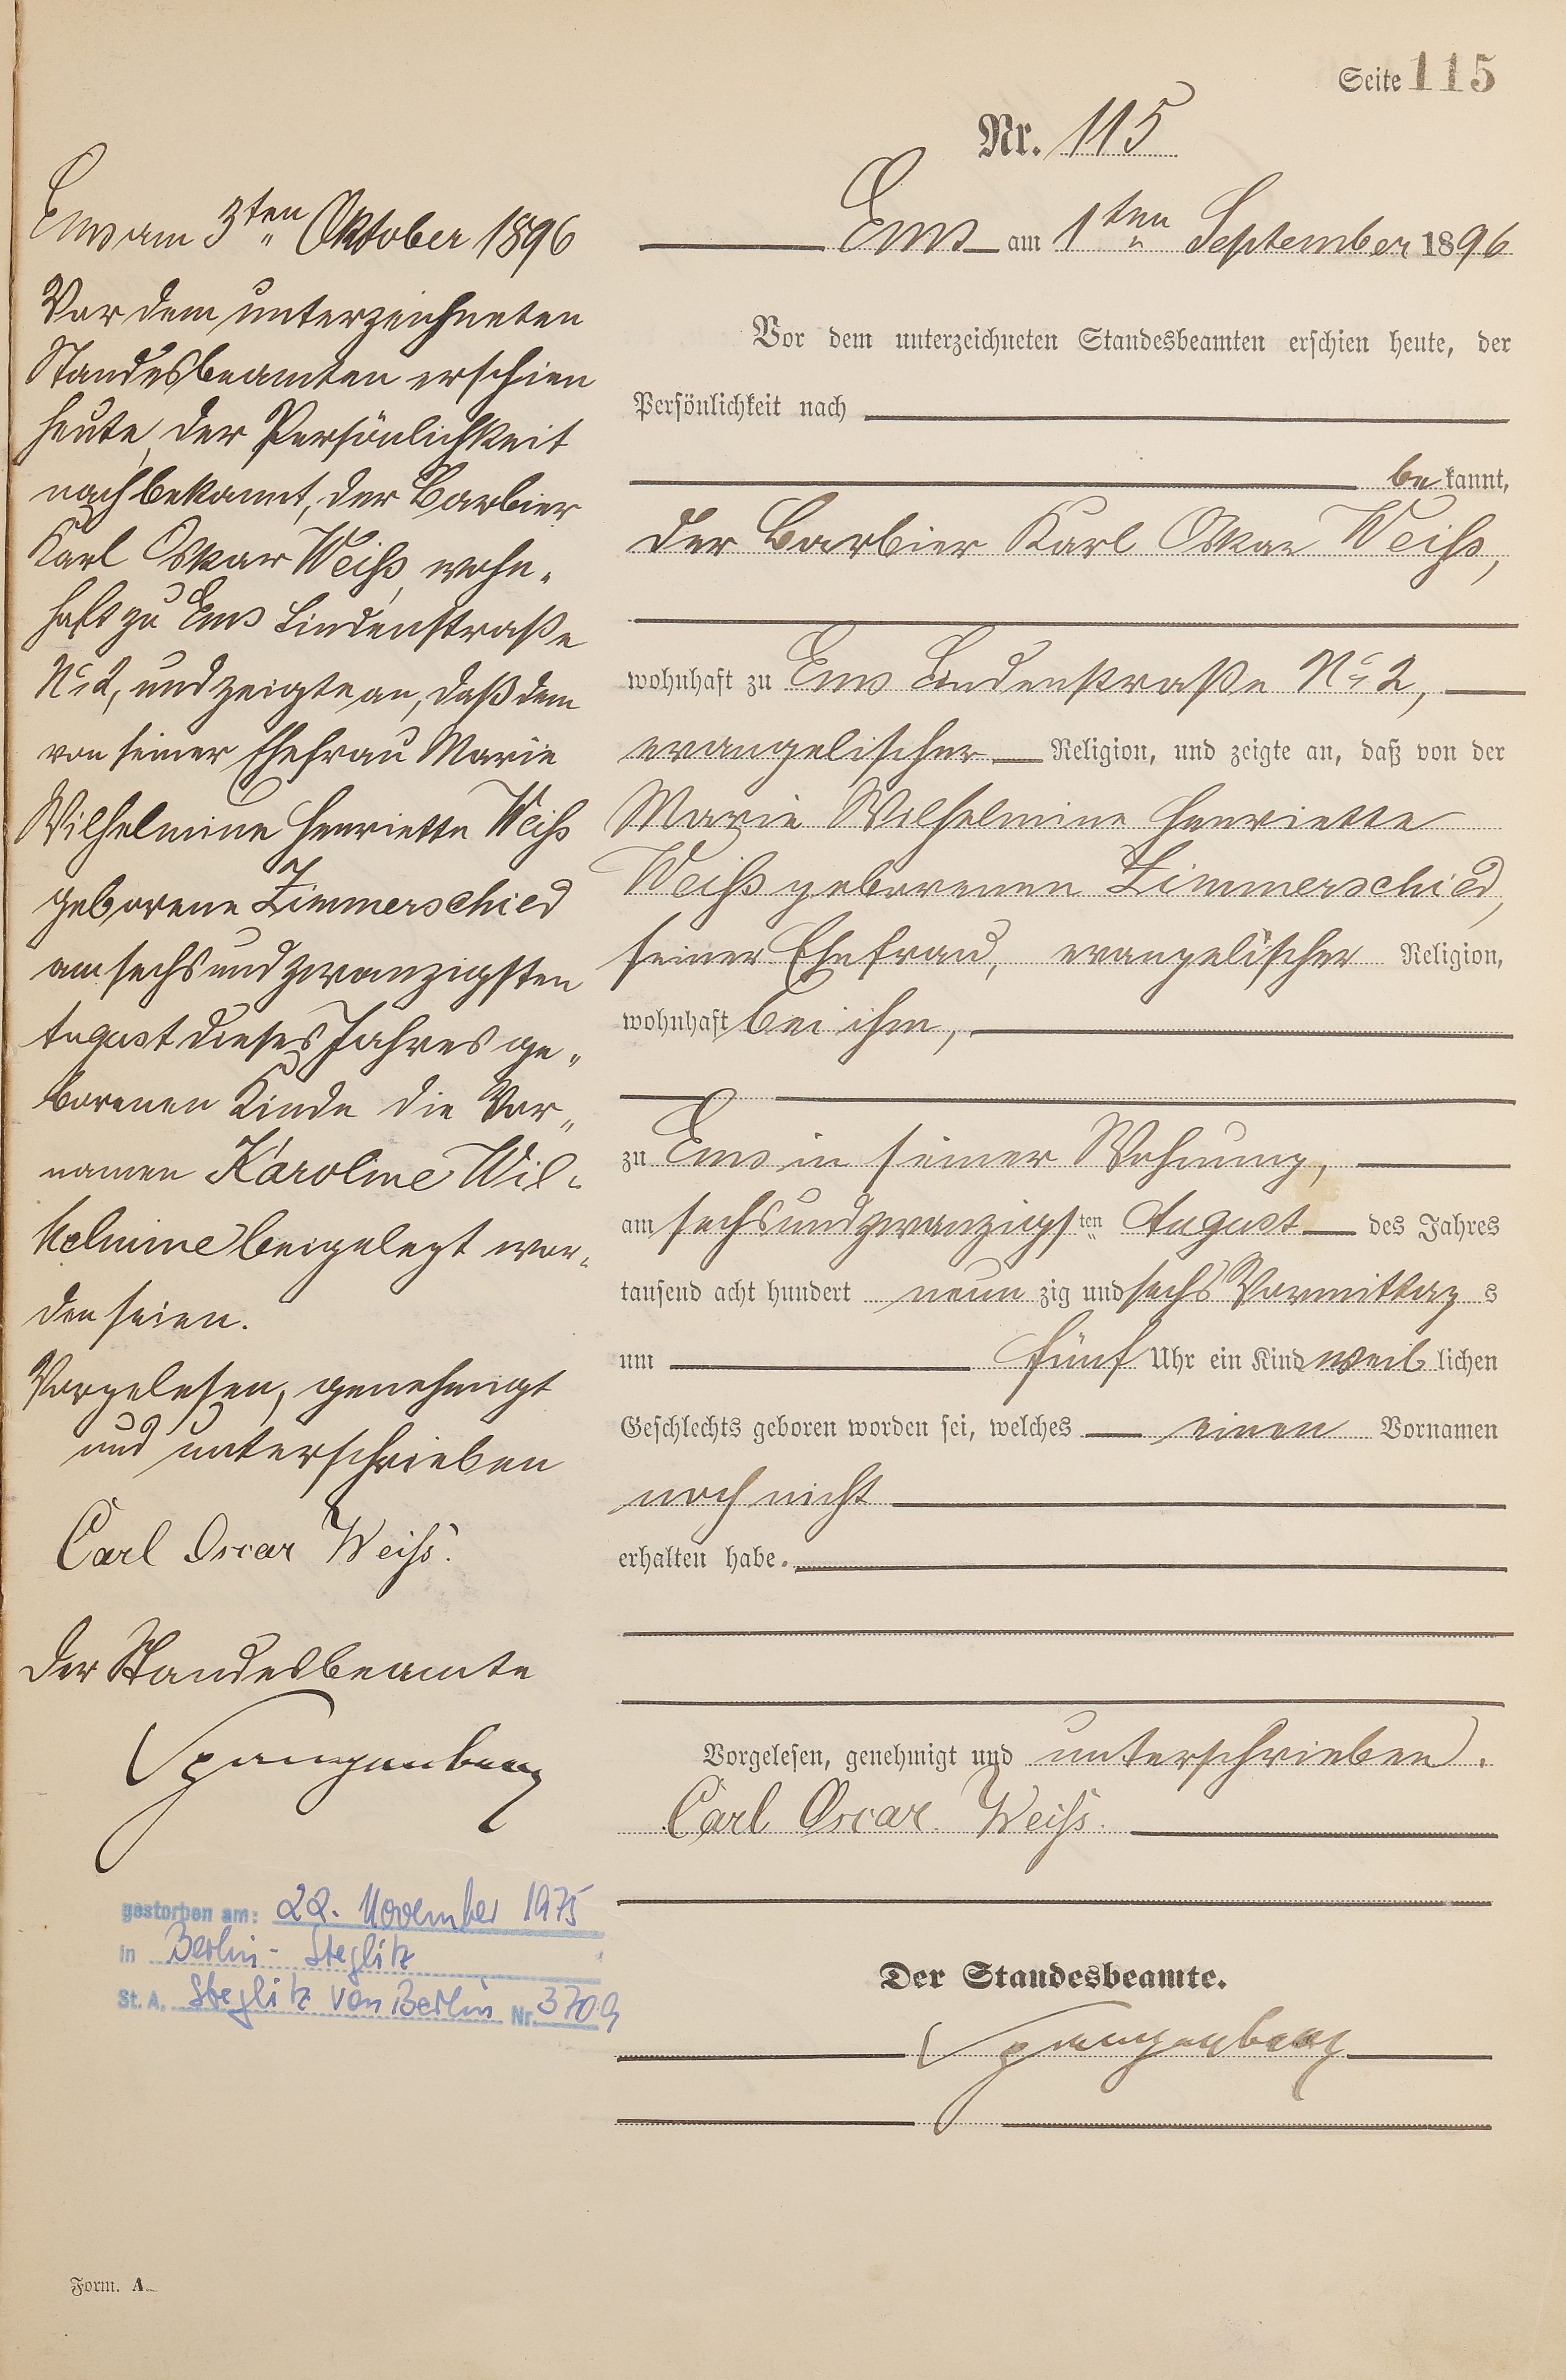 Seite 115
Nr. 115
Ems am 1ten September 1896
Vor dem unterzeichneten Standesbeamten erschien heute, der
Persönlichkeit nach
bekannt,
der Barbier Karl Oskar Weiß,
wohnhaft zu Ems Lindenstraße No 2,
evangelischer Religion, und zeigte an, daß von der
Marie Wilhelmine Henriette
Weiß geborenen Zimmerschied,
seiner Ehefrau, evangelischer Religion,
wohnhaft bei ihm,
zu Ems in seiner Wohnung,
am sechsundzwanzigsten August des Jahres
tausend acht hundert neunzig und sechs Vormittags
um fünf Uhr ein Kind weiblichen
Geschlechts geboren worden sei, welches einen Vornamen
noch nicht
erhalten habe.
Vorgelesen, genehmigt und unterschrieben.
Carl Oscar Weiß.
Der Standesbeamte.
Spangenberg
Ems am 3ten Oktober 1896
Vor dem unterzeichneten
Standesbeamten erschien
heute, der Persönlichkeit
nach bekannt, der Barbier
Karl Oskar Weiß, wohn-
haft zu Ems Lindenstraße
No 2, und zeigte an, daß dem
von seiner Ehefrau Marie
Wilhelmine Henriette Weiß
geborene Zimmerschied
am sechsundzwanzigsten
August dieses Jahres ge-
borenen Kinde die Vor-
namen Karoline Wil-
helmine beigelegt wor-
den seien.
Vorgelesen, genehmigt
und unterschrieben
Carl Oscar Weiß.
Der Standesbeamte
Spangenberg
gestorben am: 22. November 1975
in Berlin-Steglitz
St. A. Steglitz von Berlin Nr. 3709
Form. A.